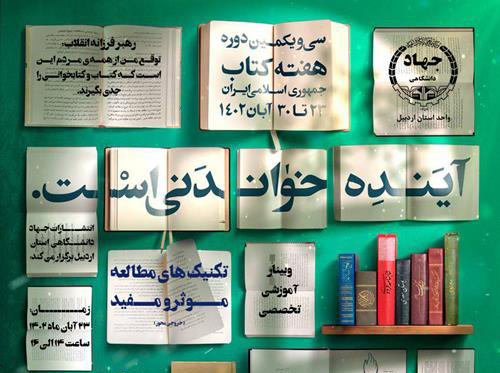 رهبر فرزانه انقلاب:
توقع من از همه‌ی مردم این
است که کتاب و کتابخوانی را
جدی بگیرند.
سی و یکمین دوره
هفته کتاب
جمهوری اسلامی ایران
۲۳ تا ۳۰ آبان ۱۴۰۲
جهاد
دانشگاهی
واحد استان اردبیل
آینده خواندنی است.
انتشارات جهاد
دانشگاهی استان
اردبیل برگزار می کند:
تکنیک های مطالعه
موثر و مفید
(خروجی محور)
وبینار
آموزشی
تخصصی
زمــــان:
۲۳ آبان ماه ۱۴۰۲
ساعت ۱۴ الی ۱۶